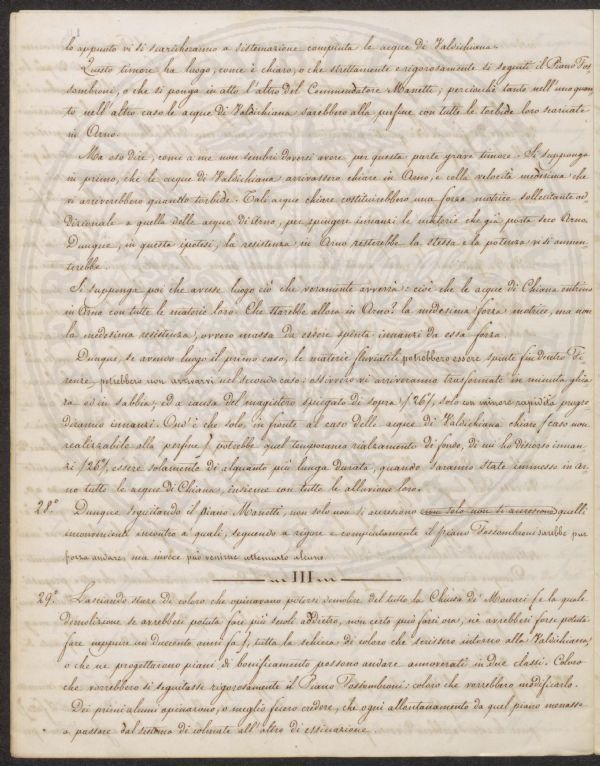 lo appunto vi si scaricheranno a sistemazione compiuta le acque di Valdichiana.
Questo timore ha luogo, come è chiaro, o che strettamente e rigorosamente si seguiti il Piano Fos-
sombroni, o che si ponga in atto l'altro del Commendatore Manetti; perciocchè tanto nell'uno quan-
to nell'altro caso le acque di Valdichiana sarebbero alla perfine con tutte le torbide loro scaricate
in Arno.
Ma oso dire, come a me non sembri doversi avere per questa parte grave timore. Si supponga
in primo, che le acque di Valdichiana arrivassero chiare in Arno, e colla velocità medesima che
vi arriverebbero quando torbide. Tali acque chiare costituirebbero una forza motrice sollecitante ad
dizionale a quella delle acque di Arno, per spingere innanzi le materie che già porta seco Arno.
Dunque, in questa ipotesi, la resistenza in Arno resterebbe la stessa e la potenza vi si aumen-
terebbe.
Si supponga poi che avesse luogo ciò che veramente avverrà: cioè che le acque di Chiana entrino
in Arno con tutte le materie loro. Che starebbe allora in Arno? la medesima forza motrice, ma non
la medesima resistenza, ovvero massa da essere spinta innanzi da essa forza.
Dunque, se avendo luogo il primo caso, le materie fluviatili potrebbero essere spinte fin dentro Fi-
renze, potrebbero non arrivarvi nel secondo caso: ossivvero vi arriveranno trasformate in minuta ghia
ra od in sabbia; ed a causa del magistero spiegato di sopra (26°), solo con minore rapidità progre
deranno innanzi. Ond'è che solo, in fronte al caso delle acque di Valdichiana chiare (caso non
realizzabile alla perfine) potrebbe quel temporaneo rialzamento di fondo, di cui ho discorso innan-
zi (26°), essere solamente di alquanto più lunga durata, quando saranno state immesse in Ar-
no tutte le acque di Chiana, insieme con tutte le alluvioni loro.
28.° Dunque seguitando il piano Manetti, non solo non si accresiono non solo non si accresiono quelli
inconvenienti incontro a' quali, seguendo a rigore e compiutamente il piano Fossombroni sarebbe pur
forza andare, ma invece può venirne attenuato alcuno.
III
29.° Lasciando stare di coloro che opinavano potersi demolire del tutto la Chiusa de' Monaci (e la quale
demolizione se avrebbesi potuta fare più secoli addietro, non certo può farsi ora, nè avrebbesi forse potuta
fare neppure un duecento anni fa), tutta la schiera di coloro che scrissero intorno alla Valdichiana,
o che ne progettarono piani di bonificamento possono andare annoverati in due classi. Coloro
che vorrebbero si seguitasse rigorosamente il Piano Fossombroni: coloro che vorrebbero modificarlo.
Dei primi alcuni opinarono, o meglio fecero credere, che ogni allontanamento da quel piano menasse
a passare dal sistema di colmate all'altro di essicazione.